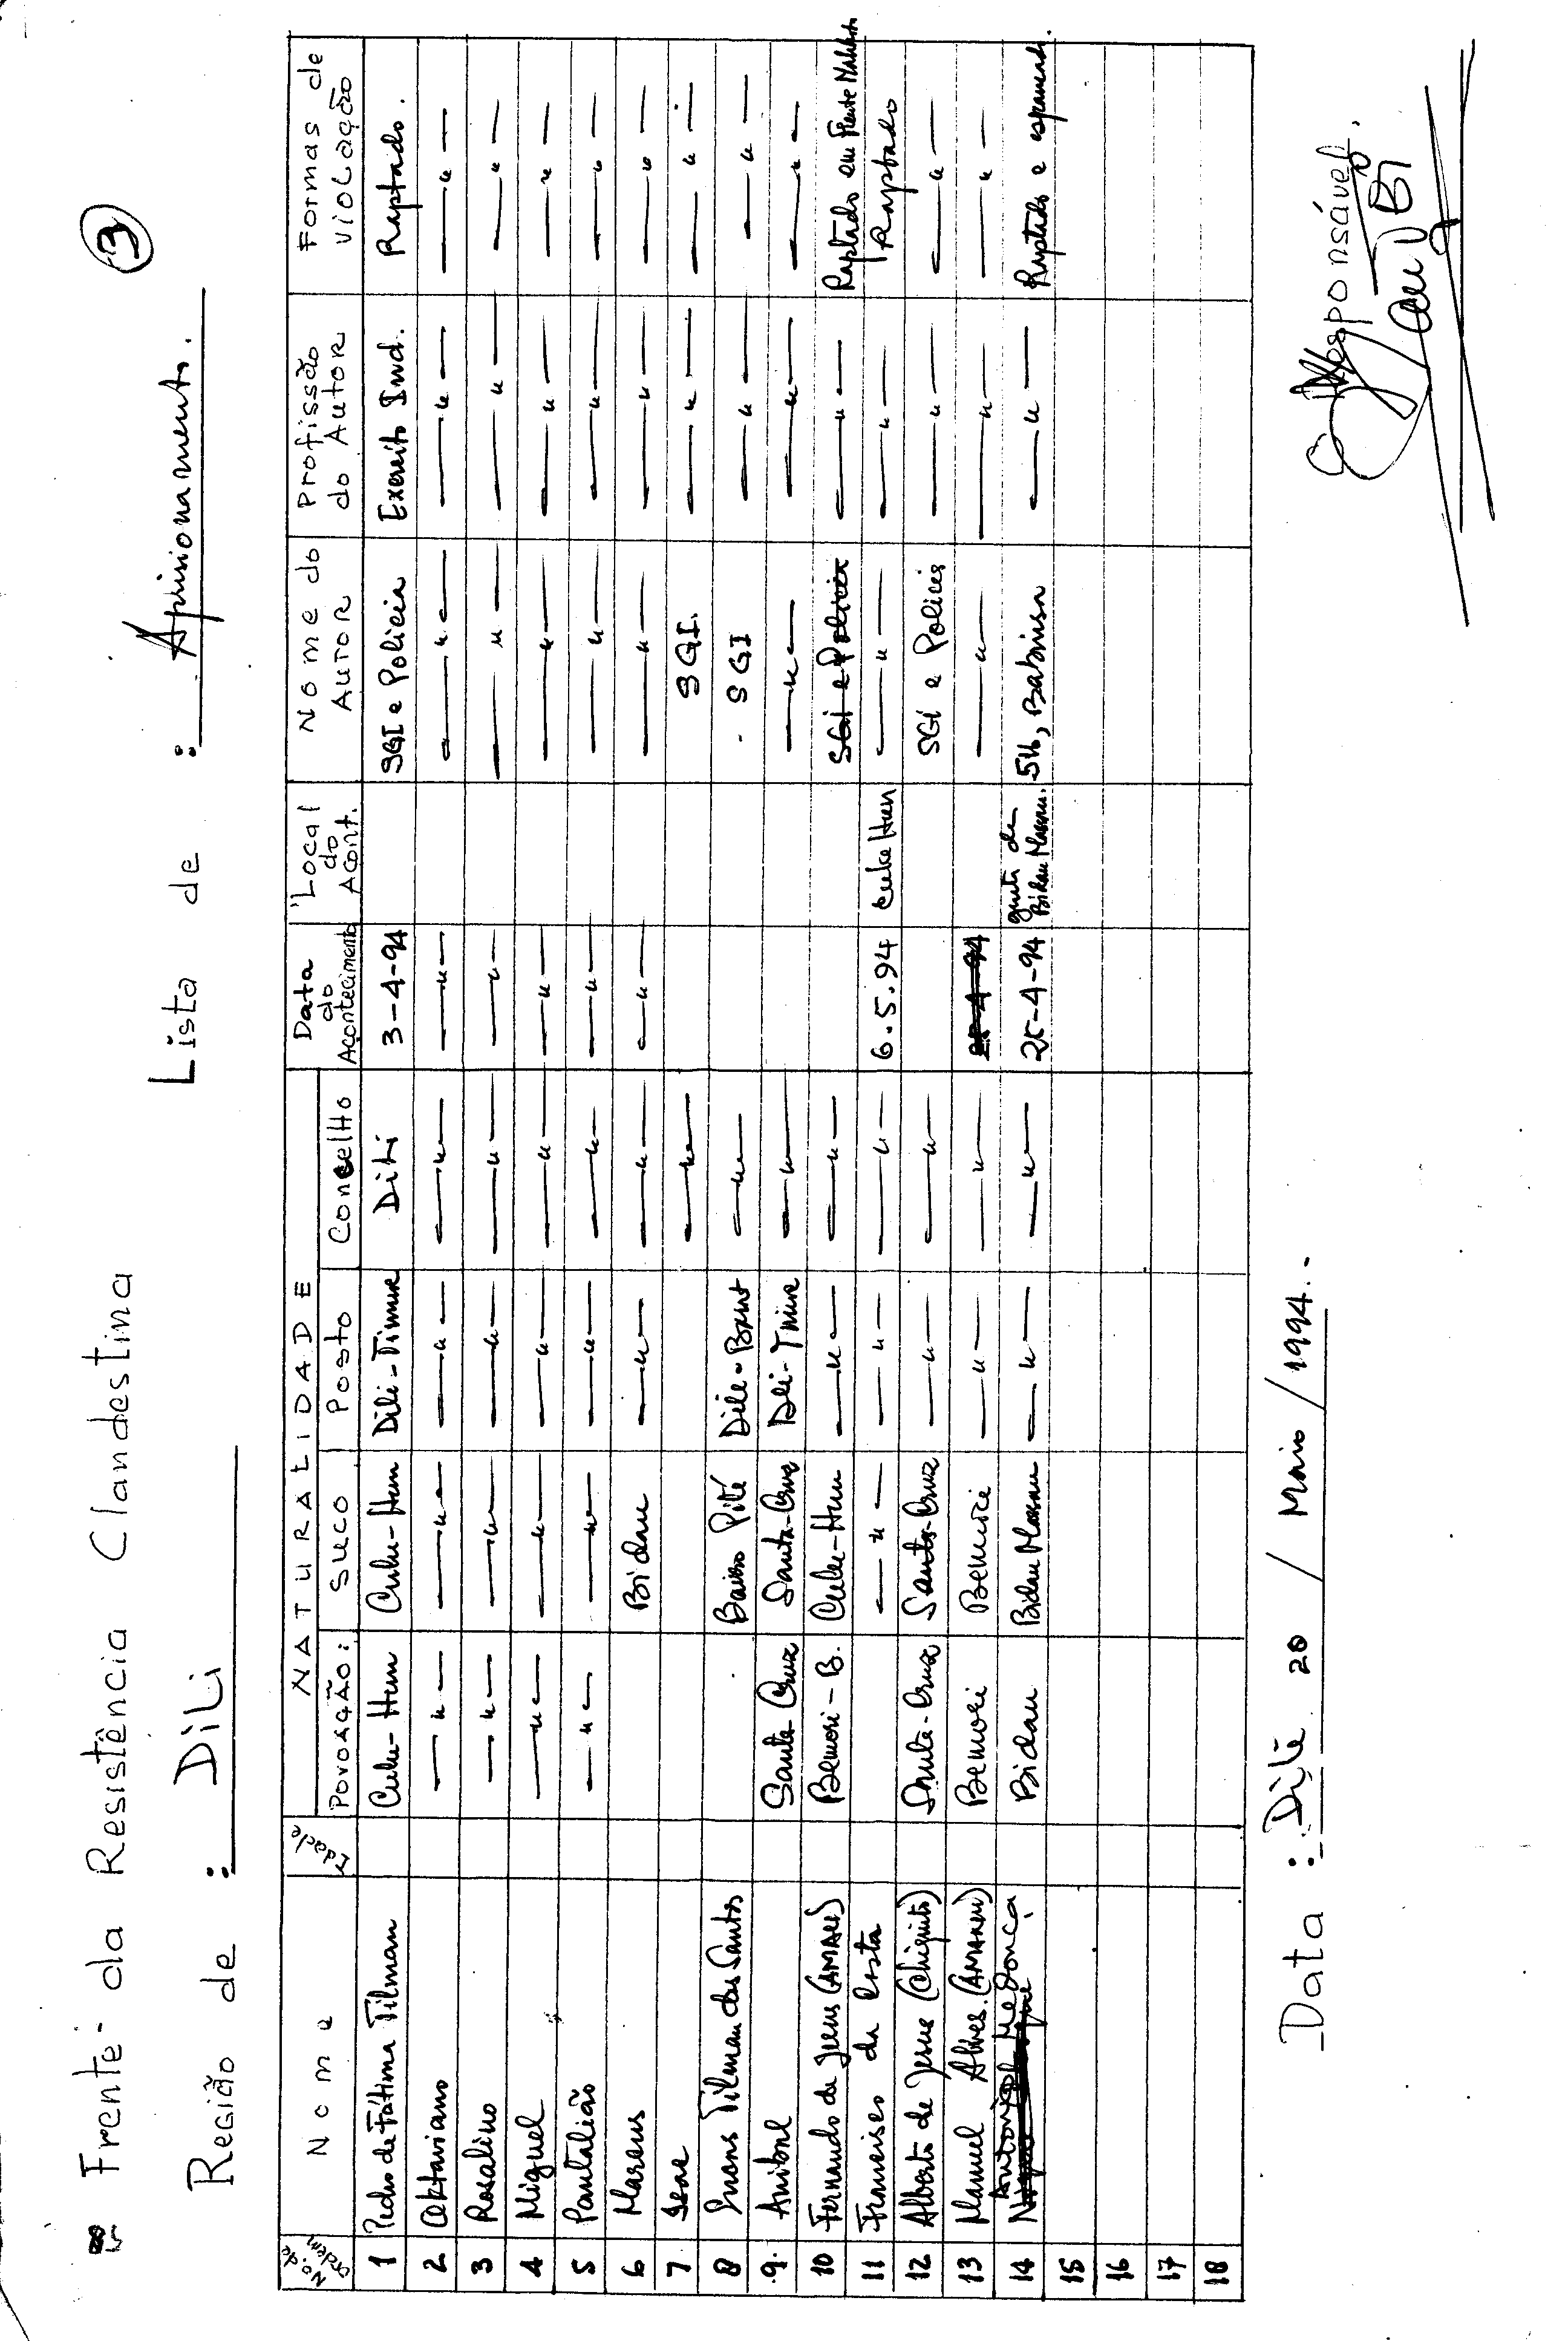 Frente da Resistência Clandestina
3
Região de : Dili
Lista de : Aprisionamento.
No. de Ordem | Nome | Idade | NATURALIDADE | Data do Acontecimento | Local do Acont. | Nome do Autor | Profissão do Autor | Formas de Violação
Povoação: | Suco | Posto | Concelho
1 | Pedro de Fátima Tilman | Culu-Hun | Culu-Hun | Dili-Timur | Dili | 3-4-94 | SGI e Policia | Exercito Ind. | Raptado.
2 | Oktaviano | —"— | —"— | —"— | —"— | —"— | —"— | —"— | —"—
3 | Rosalino | —"— | —"— | —"— | —"— | —"— | —"— | —"— | —"—
4 | Miguel | —"— | —"— | —"— | —"— | —"— | —"— | —"— | —"—
5 | Pantalião | —"— | —"— | —"— | —"— | —"— | —"— | —"— | —"—
6 | Marcus | Bidau | —"— | —"— | —"— | —"— | —"— | —"—
7 | Isac | —"— | SGI. | —"— | —"—
8 | Tilman dos Santos | Bairro Pité | Dili-Barat | —"— | SGI | —"— | —"—
9. | Anibal | Santa Cruz | Santa-Cruz | Dili-Timur | —"— | —"— | —"— | —"—
10 | Fernando de Jesus (AMALI) | Bemori-B. | Culu-Hun | —"— | —"— | SGI e Policia | —"— | Raptado em Frente
11 | Francisco da Costa | —"— | —"— | —"— | 6.5.94 | Culu Hun | —"— | —"— | Raptado
12 | Alberto de Jesus (Chiquito) | Santa-Cruz | Santa-Cruz | —"— | —"— | SGI e Policia | —"— | —"—
13 | Manuel Alves. | Bemori | Bemori | —"— | —"— | 25-4-94 | —"— | —"— | —"—
14 | António Mendonça | Bidau | Bidau Massau | —"— | —"— | 25-4-94 | Bidau Massau. | —"— | Raptado e
15
16
17
18
Data : Dili 20 / Maio / 1994.
O Responsável.